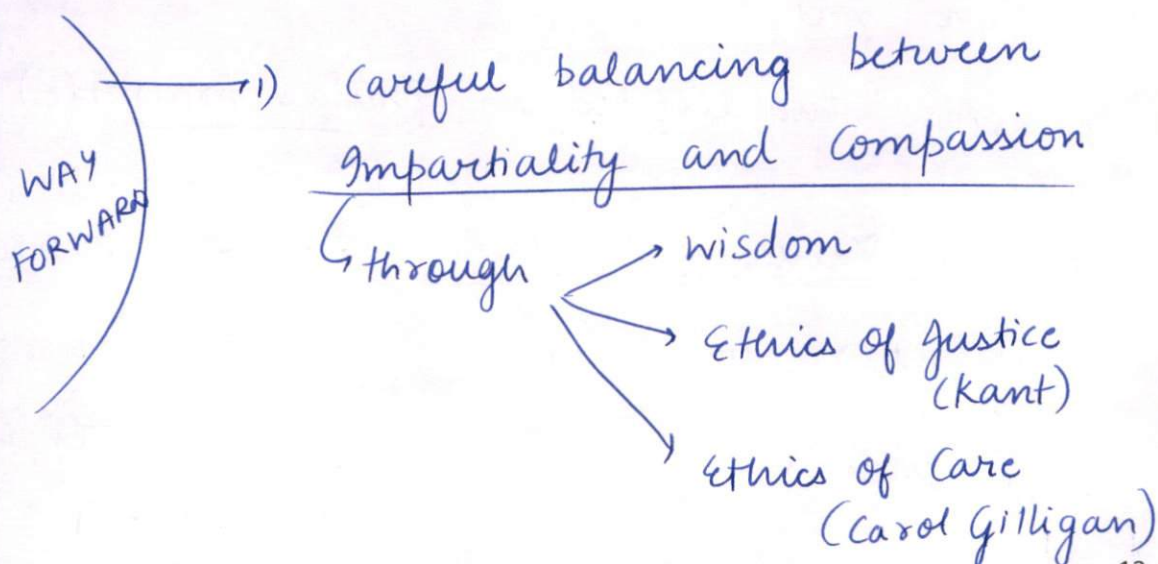 WAY
FORWARD
1) Careful balancing between
Impartiality and Compassion
through
wisdom
Ethics of Justice
(Kant)
Ethics of Care
(Carol Gilligan)